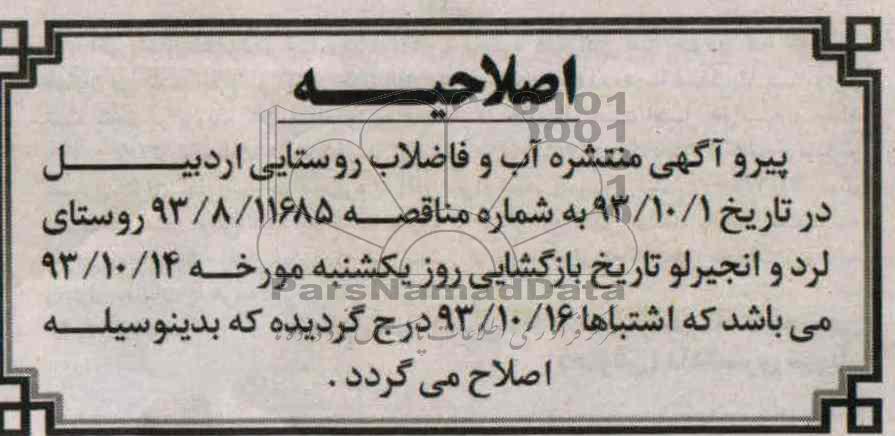 اصلاحیه
پیرو آگهی منتشره آب و فاضلاب روستایی اردبیل
در تاریخ ۹۳/۱۰/۱ به شماره مناقصه ۹۳/۸/۱۱۶۸۵ روستای
لرد و انجیرلو تاریخ بازگشایی روز یکشنبه مورخه ۹۳/۱۰/۱۴
ParsNamadData
می باشد که اشتباها ۹۳/۱۰/۱۶ درج گردیده که بدینوسیله
اصلاح می گردد .